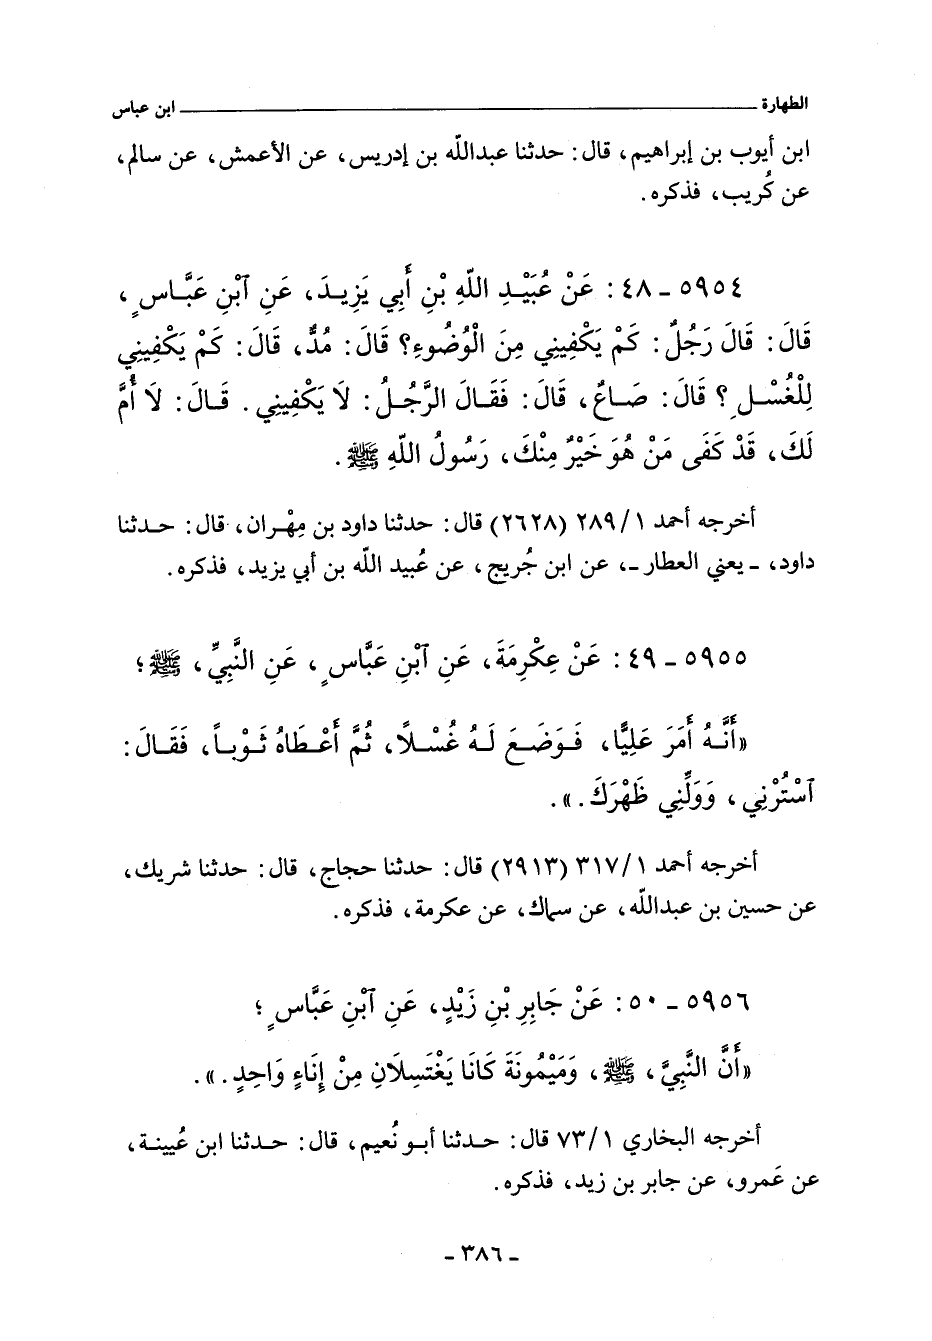 الطهارة ـــــــــــــــــــــــــــــــــــــ ابن عباس
ابن أيوب بن إبراهيم، قال: حدثنا عبدالله بن إدريس، عن الأعمش، عن سالم،
عن كُريب، فذكره.
٥٩٥٤ ـ ٤٨: عَنْ عُبَيْدِ اللهِ بْنِ أَبِي يَزِيدَ، عَنِ ٱبْنِ عَبَّاسٍ،
قَالَ: قَالَ رَجُلٌ: كَمْ يَكْفِينِي مِنَ الْوُضُوءِ؟ قَالَ: مُدٌّ، قَالَ: كَمْ يَكْفِينِي
لِلْغُسْلِ؟ قَالَ: صَاعٌ، قَالَ: فَقَالَ الرَّجُلُ: لاَ يَكْفِينِي. قَالَ: لاَ أُمَّ
لَكَ، قَدْ كَفَى مَنْ هُوَ خَيْرٌ مِنْكَ، رَسُولُ اللهِ ﷺ.
أخرجه أحمد ٢٨٩/١ (٢٦٢٨) قال: حدثنا داود بن مِهْران، قال: حدثنا
داود، ـ يعني العطار ـ، عن ابن جُريج، عن عُبيد الله بن أبي يزيد، فذكره.
٥٩٥٥ ـ ٤٩: عَنْ عِكْرِمَةَ، عَنِ ٱبْنِ عَبَّاسٍ، عَنِ النَّبِيِّ، ﷺ؛
«أَنَّهُ أَمَرَ عَلِيًّا، فَوَضَعَ لَهُ غُسْلاً، ثُمَّ أَعْطَاهُ ثَوْباً، فَقَالَ:
ٱسْتُرْنِي، وَوَلِّنِي ظَهْرَكَ.».
أخرجه أحمد ٣١٧/١ (٢٩١٣) قال: حدثنا حجاج، قال: حدثنا شريك،
عن حسين بن عبدالله، عن سماك، عن عكرمة، فذكره.
٥٩٥٦ ـ ٥٠: عَنْ جَابِرِ بْنِ زَيْدٍ، عَنِ ٱبْنِ عَبَّاسٍ؛
«أَنَّ النَّبِيَّ، ﷺ، وَمَيْمُونَةَ كَانَا يَغْتَسِلَانِ مِنْ إِنَاءٍ وَاحِدٍ.».
أخرجه البخاري ٧٣/١ قال: حدثنا أبو نُعيم، قال: حدثنا ابن عُيينة،
عن عَمرو، عن جابر بن زيد، فذكره.
ـ ٣٨٦ ـ